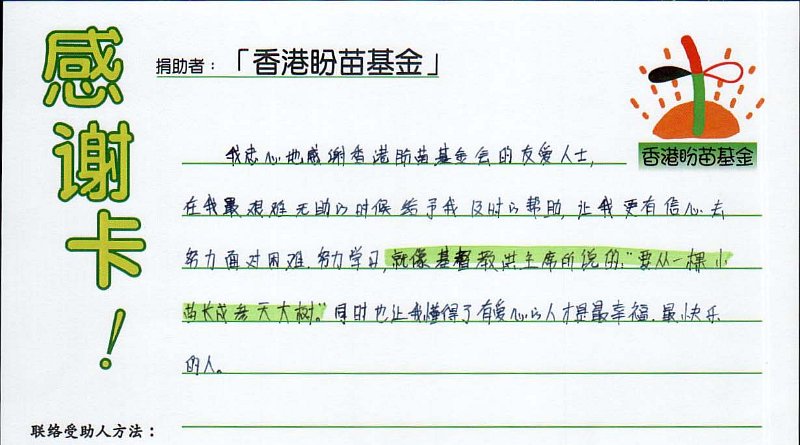 感谢卡！
捐助者：「香港盼苗基金」
香港盼苗基金
我忠心地感谢香港盼苗基金会的友爱人士，
在我最艰难无助的时候给予我及时的帮助，让我更有信心去
努力面对困难、努力学习，就像基督教洪主席所说的：“要从一棵小
苗长成参天大树。”同时也让我懂得了有爱心的人才是最幸福、最快乐
的人。
联络受助人方法：